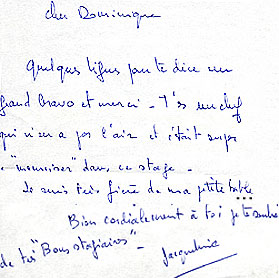 cher Dominique
Quelques lignes pour te dire un
grand bravo et merci - T'es un chef
qui n'en a pas l'air et c'était super
de "
" dans ce stage -
Je suis très fière de ma petite table
Bien cordialement à toi je te
de tes "Bons stagiaires" -
Jacqueline